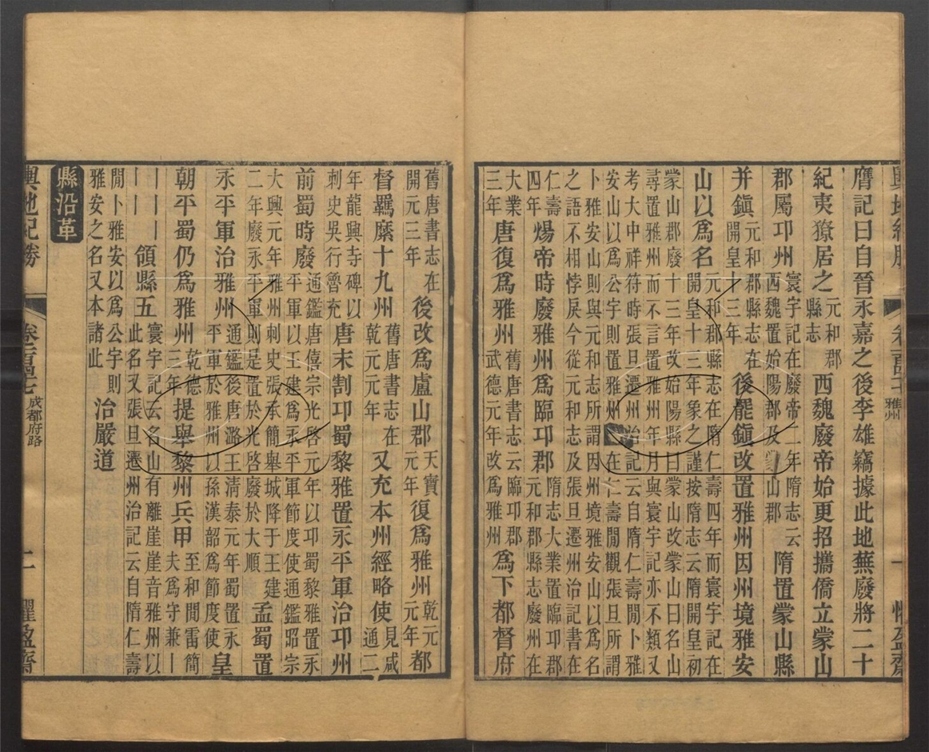 膺記曰自晉永嘉之後李雄竊據此地蕪廢將二十
紀夷獠居之元和郡縣志西魏廢帝始更招攜僑立蒙山
郡屬邛州寰宇記在廢帝二年隋志云西魏置始陽郡及蒙山郡隋置蒙山縣
并鎮元和郡縣志在開皇十三年後罷鎮改置雅州因州境雅安
山以為名元和郡縣志在隋仁壽四年而寰宇記在開皇十三年象之謹按隋志云隋開皇初
蒙山郡廢十三年改始陽縣曰蒙山改蒙山曰名山尋置雅州而不言置雅州年月與寰宇記亦不類又
考大中祥符時張旦遷州治記云自隋仁壽閒卜雅安山以為公宇則置雅州在仁壽閒觀張旦所謂
卜雅安山則與元和志所謂因州境雅安山以為名之語不相悖戾今從元和志及張旦遷州治記書在
仁壽四年煬帝時廢雅州為臨邛郡隋志大業置臨邛郡元和郡縣志廢州在
大業三年唐復為雅州舊唐書志云臨邛郡武德元年改為雅州為下都督府
舊唐書志在開元三年後改為盧山郡天寶元年復為雅州乾元元年都
督羈縻十九州舊唐書志在乾元元年又充本州經略使見咸通二
年龍興寺碑以刺史吳行魯充唐末割邛蜀黎雅置永平軍治邛州
前蜀時廢通鑑唐僖宗光啓元年以邛蜀黎雅置永平軍以王建為永平軍節度使通鑑昭宗
大興元年雅州刺史張承簡舉城降于王建二年廢永平軍則是置於光啓廢於大順孟蜀置
永平軍治雅州通鑑後唐潞王清泰元年蜀置永平軍於雅州以孫漢韶為節度使皇
朝平蜀仍為雅州乾德三年提舉黎州兵甲至和間雷簡夫為守兼｜
｜｜｜｜｜｜領縣五寰宇記云名山有離崖崖音雅州以此名又張旦遷州治記云自隋仁壽
閒卜雅安以為公宇則雅安之名又本諸此治嚴道
縣沿革
輿地紀勝 卷一百四十七 成都府路 二 懼盈齋